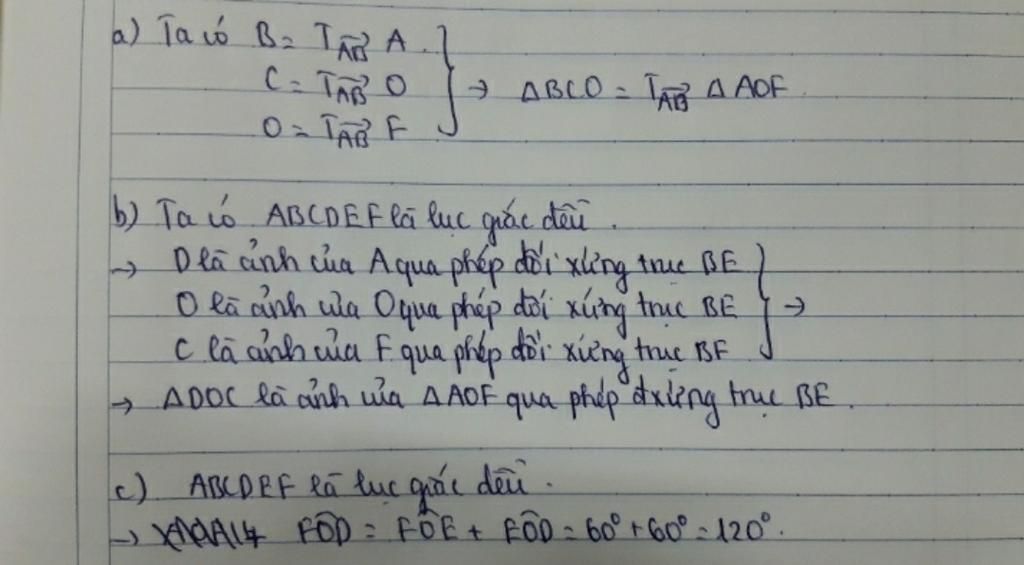 a) Ta có B = T_{\overrightarrow{AB}} A
C = T_{\overrightarrow{AB}} O } → ΔBCO = T_{\overrightarrow{AB}} ΔAOF
O = T_{\overrightarrow{AB}} F
b) Ta có ABCDEF là lục giác đều.
→ D là ảnh của A qua phép đối xứng trục BE
O là ảnh của O qua phép đối xứng trục BE } →
C là ảnh của F qua phép đối xứng trục BE
→ ΔDOC là ảnh của ΔAOF qua phép đxứng trục BE.
c) ABCDEF là lục giác đều.
→ FÔD = FÔE + EÔD = 60° + 60° = 120°.